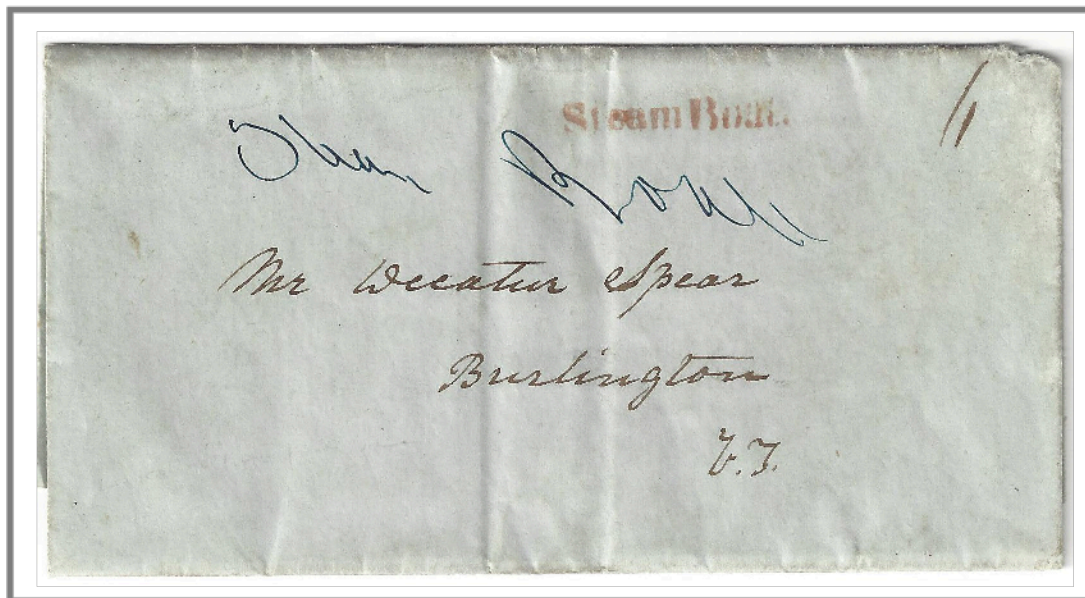 Steam Boat.
6
Steam Boat
Mr Decatur Spear
Burlington
V.T.